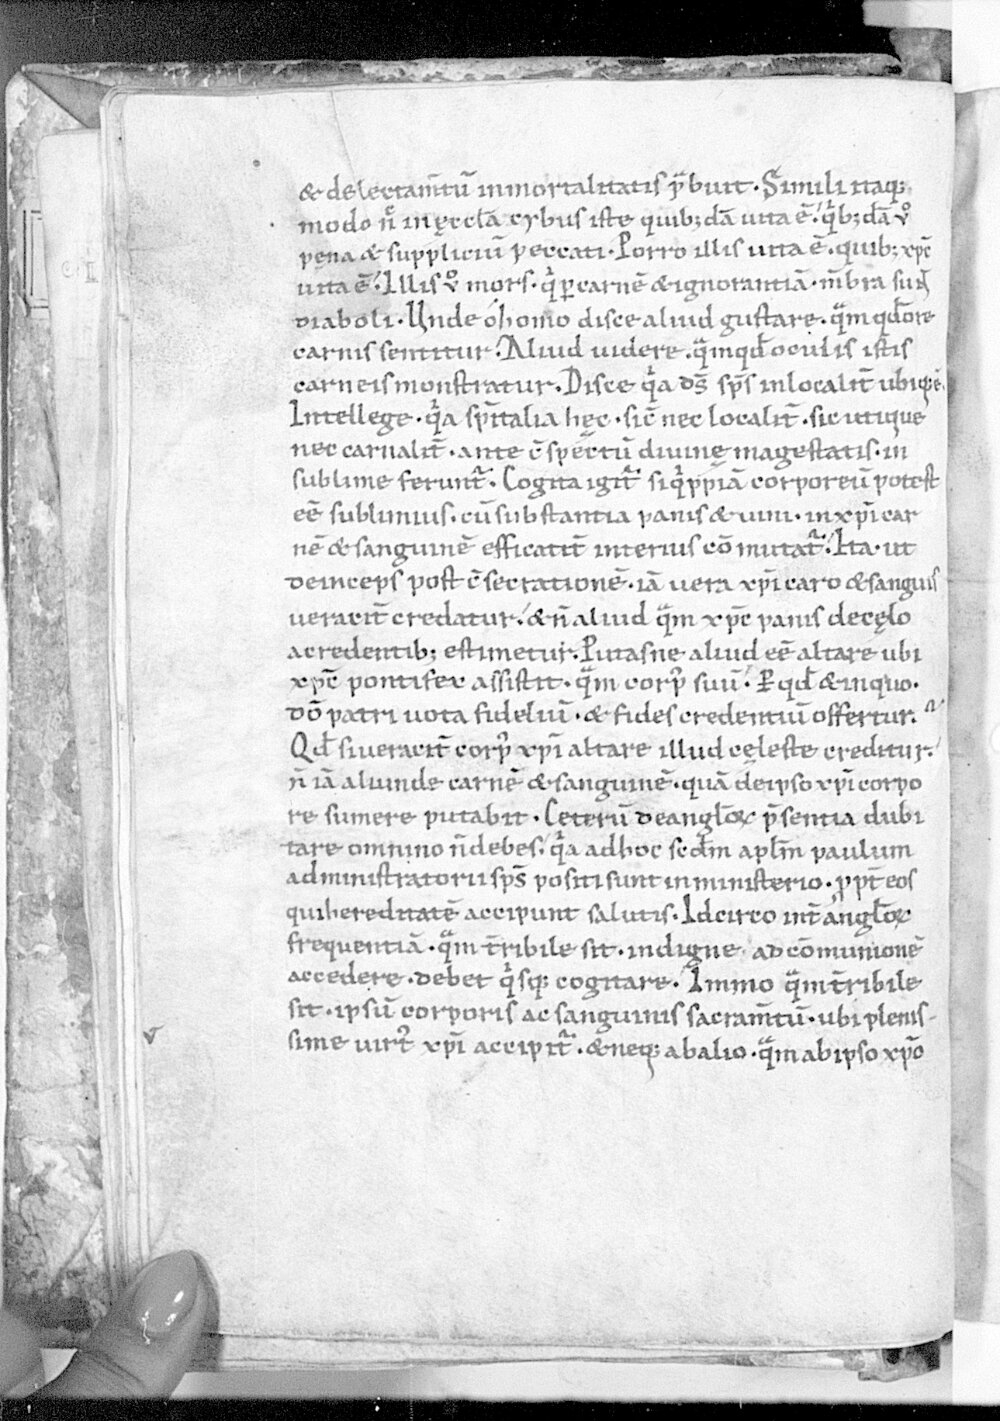 & delectam̄tū inmortalitatis p̄buit · Simili itaq;
modo n̄ in ęccl̄a cybus iste quib;dā uita ē · q'b;dā v°
pęna & suppliciū peccati · Porro illis uita ē · quib; xp̄c
uita ē · Illis v° mors · q' ꝑ carnē & ignorantiā · m̄bra sun̄
diaboli · Unde ó homo disce aliud gustare · qͣm qd̄ ore
carnis sentitur · Aliud uidere · qͣm qd̄ oculis istis
carneis monstratur · Disce qͥa ds̄ sps̄ inlocalit̄ ubiq; ē ·
Intellege · qͥa sp̄italia hęc · sic̄ nec localit̄ · sic utique
nec carnalit̄ · ante c̄spectū diuinę magestatis · in
sublime ferunt̄ · Cogita igit̄ si qͥppiā corporeū potest
eē sublimius · cū substantia panis & uini · in xp̄i car
nē & sanguinē efficacit̄ interius cōmutat̄ · Ita · ut
deinceps post c̄secrationē · iā uera xp̄i caro & sanguis
ueracit̄ credatur · & n̄ aliud qͣm xp̄c panis de cęlo
a credentib; estimetur · Putasne aliud eē altare ubi
xp̄c pontifex assistit · qͣm corp' suū · ꝑ qd̄ & in quo ·
dō patri uota fideliū · & fides credentiū offertur ·
Qd̄ si ueracit̄ corp' xp̄i altare illud cęleste creditur ·
n̄ iā aliunde carnē & sanguinē · quā de ipso xp̄i corpo
re sumere putabit · Ceterū de angl̄oꝝ p̄sentia dubi
tare omnino n̄ debes · qͥa adhoc scd̄m apl̄m paulum
administratorii sps̄ positi sunt in ministerio · ꝓpt̄ eos
qui hereditatē accipiunt salutis · Idcirco int̄ angl̄oꝝ
frequentiā · qͣm t̄ribile sit · indigne ad cōmunionē
accedere · debet qͥsq; cogitare · Immo qͣm t̄ribile
sit · ipsū corporis ac sanguinis sacram̄tū · ubi plenis-
sime uirt' xp̄i accipit̄ · & neq; ab alio · qͣm ab ipso xp̄o